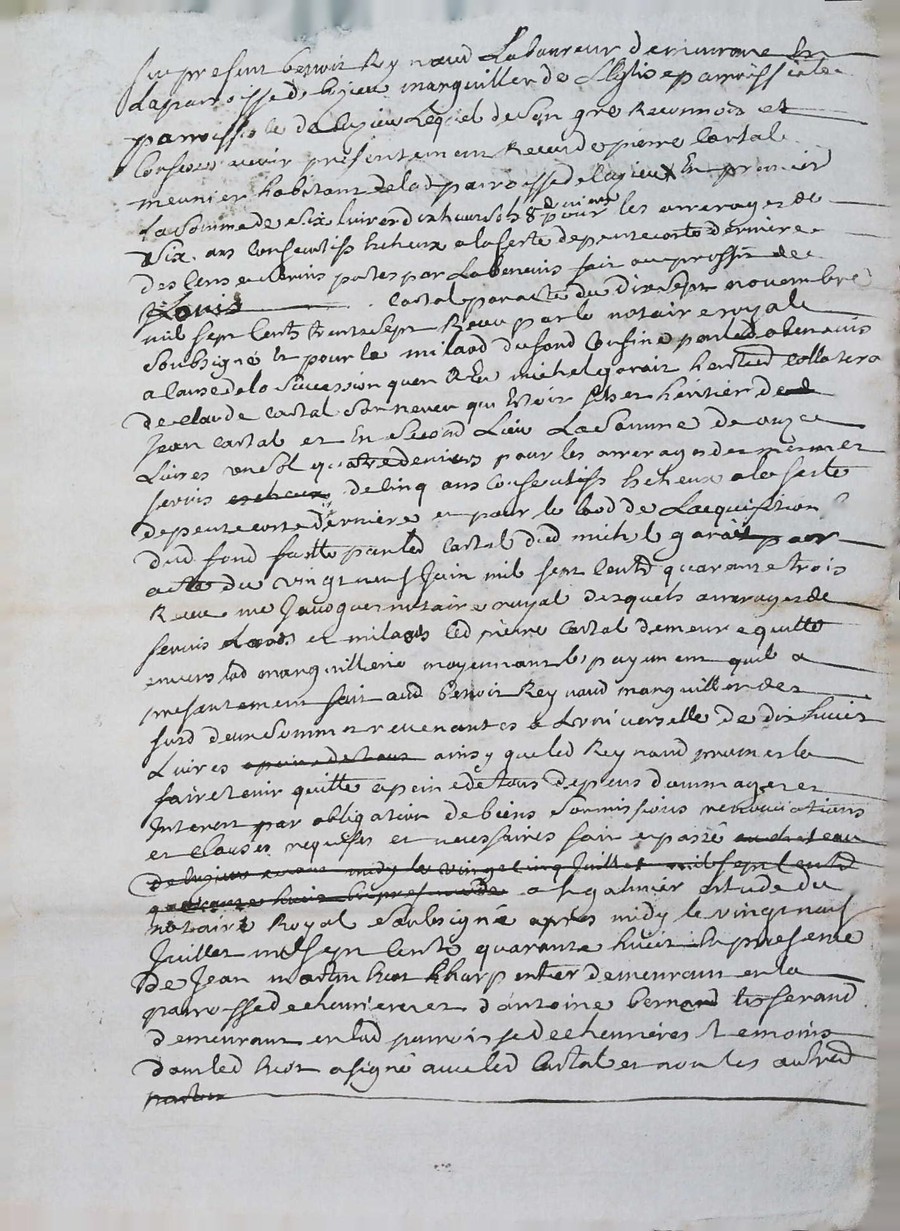 fut present benoit Reynaud Laboureur de
la parroisse de marguiller de L'Eglise parroissialle
parroissialle de Lequel de son gré Reconnois et
Confesse avoir presentement Receu de pierre Cartal
meunier habitant de lad parroisse de En premier
La Somme de six livres dixhuit sols 8 deniers pour les arrerages de
six ans Consecutifs Echeux a la feste de pentecoste derniere
des Cens et servis portes par Labenevis fait au proffit de
Louis Cartal par acte du dix sept novembre
mil sept Cents trente sept Receu par le notaire royal
Soubsigné Et pour le milaod du fond Confiné par led abenevis
a Cause de la succession quen a Eu michel garait heritier Collatera
de Claude Cartal Son neveu qui Estoit fils et heritier de
Jean Cartal et En Second Lieu La Somme de onze
Livres un sol quatre deniers pour les arrerages des mesmes
servis echeux de Cinq ans Consecutifs Echeux a la feste
de pentecoste derniere et pour le laod de Lacquisition
dud fond faitte par led Cartal dud michel garait par
acte du vingt neuf Juin mil sept Cents quarante trois
Receu me Jacques notaire royal desquels arrerages de
servis Laods et milaods led pierre Cartal demeure quitte
envers lad marguillerie moyennant le payement quil a
presentement fait aud benoit Reynaud marguiller des
susd deux Sommes revenantes a Luniverselle de dix huit
Livres a peine de tous ainsy que led Reynaud promet la
faire tenir quitte a peine de tous depens dommages et
Interest par obligation de biens Soumissions renonciations
et Clauses requises et necessaires fait et passé
apres midy le vingt cinq Juillet mil sept Cents
quarante huit En presence a st galmier estude du
notaire Royal Soubsigné apres midy le vingt neuf
Juillet mil sept Cents quarante huit En presence
de Jean martin huot Charpentier demeurant en la
parroisse de chenieres et d'antoine bernard tisserand
demeurant en lad parroisse de chenieres temoins
dont led huot a signé avec led Cartal et non les autres